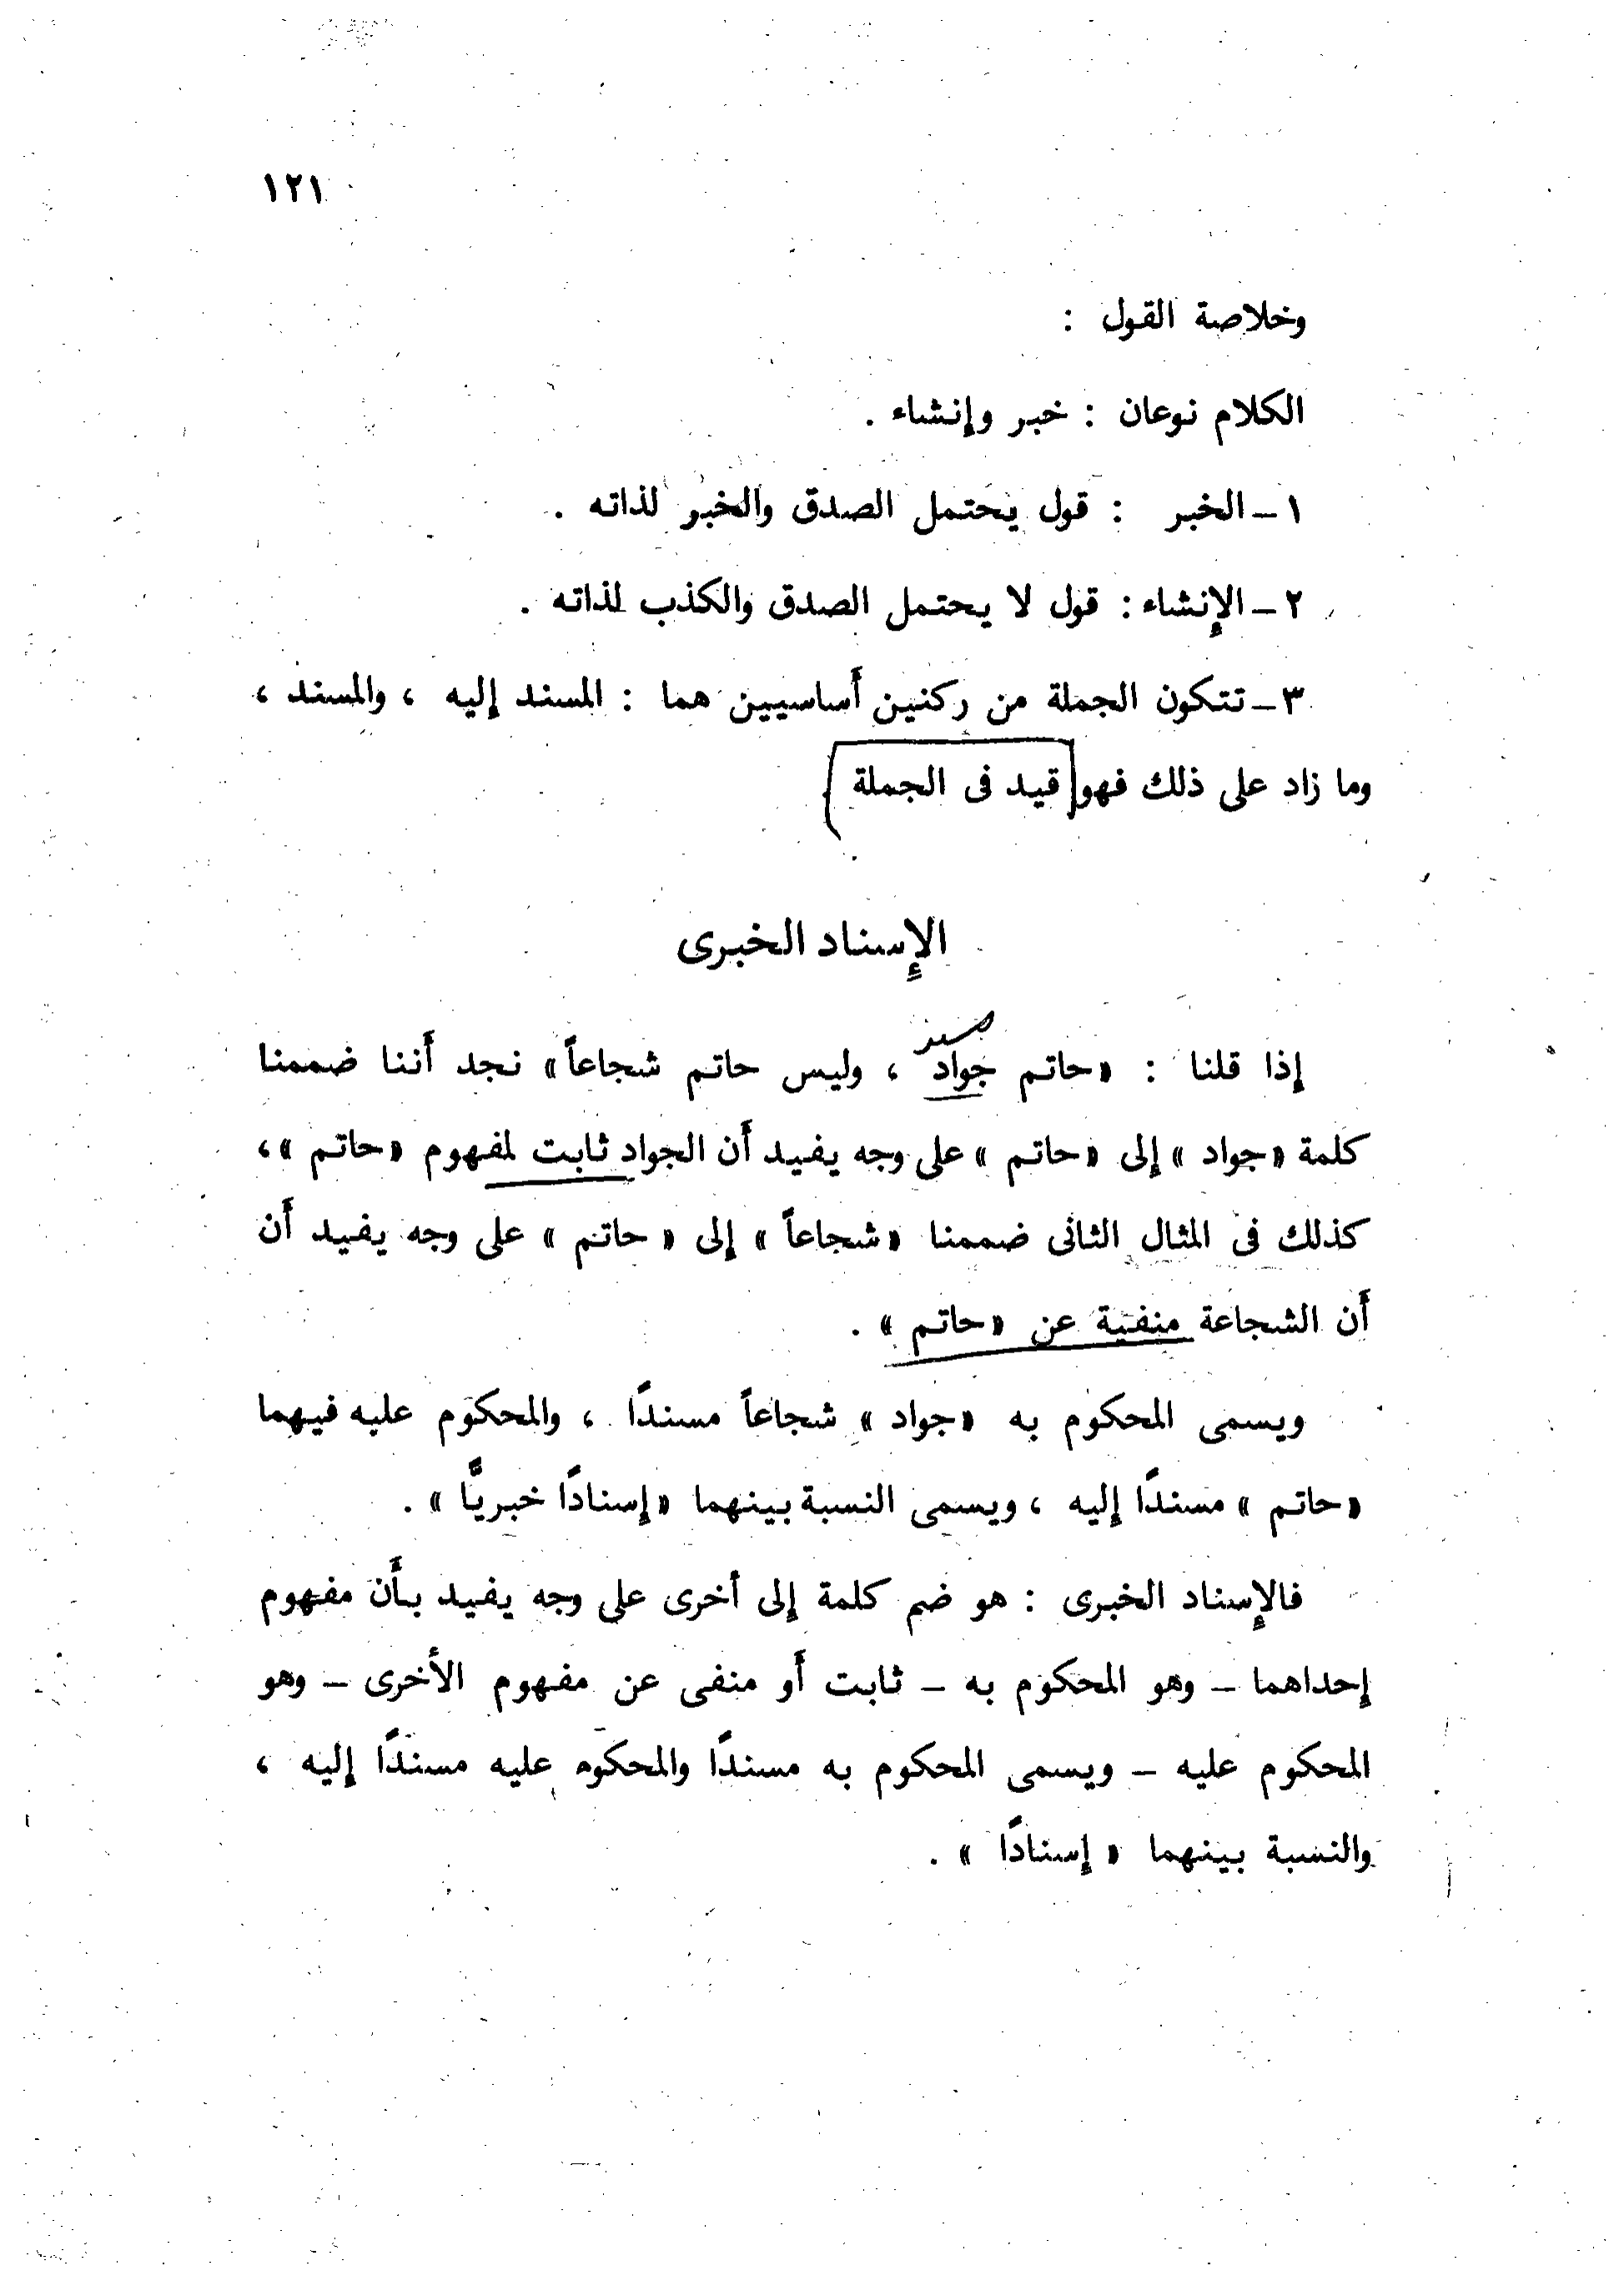 ١٢١
وخلاصة القول :
الكلام نوعان : خبر وإنشاء .
١ – الخبر : قول يحتمل الصدق والخبر لذاته .
٢ – الإنشاء : قول لا يحتمل الصدق والكذب لذاته .
٣ – تتكون الجملة من ركنين أساسيين هما : المسند إليه ، والمسند ،
وما زاد على ذلك فهو قيد فى الجملة
الإسناد الخبرى
إذا قلنا : «حاتم جواد ، وليس حاتم شجاعاً» نجد أننا ضممنا
كلمة «جواد » إلى «حاتم » على وجه يفيد أن الجواد ثابت لمفهوم «حاتم »،
كذلك فى المثال الثانى ضممنا «شجاعاً » إلى « حاتم » على وجه يفيد أن
أن الشجاعة منفية عن «حاتم » .
ويسمى المحكوم به «جواد » شجاعاً مسندًا ، والمحكوم عليه فيهما
«حاتم » مسندًا إليه ، ويسمى النسبة بينهما «إسنادًا خبريًّا » .
فالإسناد الخبرى : هو ضم كلمة إلى أخرى على وجه يفيد بأن مفهوم
إحداهما – وهو المحكوم به – ثابت أو منفى عن مفهوم الأخرى – وهو
المحكوم عليه – ويسمى المحكوم به مسندًا والمحكوم عليه مسندًا إليه ،
والنسبة بينهما « إسنادًا » .